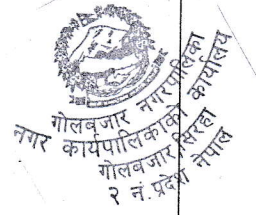 गोलबजार नगरपालिका
नगर कार्यपालिकाको कार्यालय
गोलबजार सिरहा
२ नं. प्रदेश नेपाल